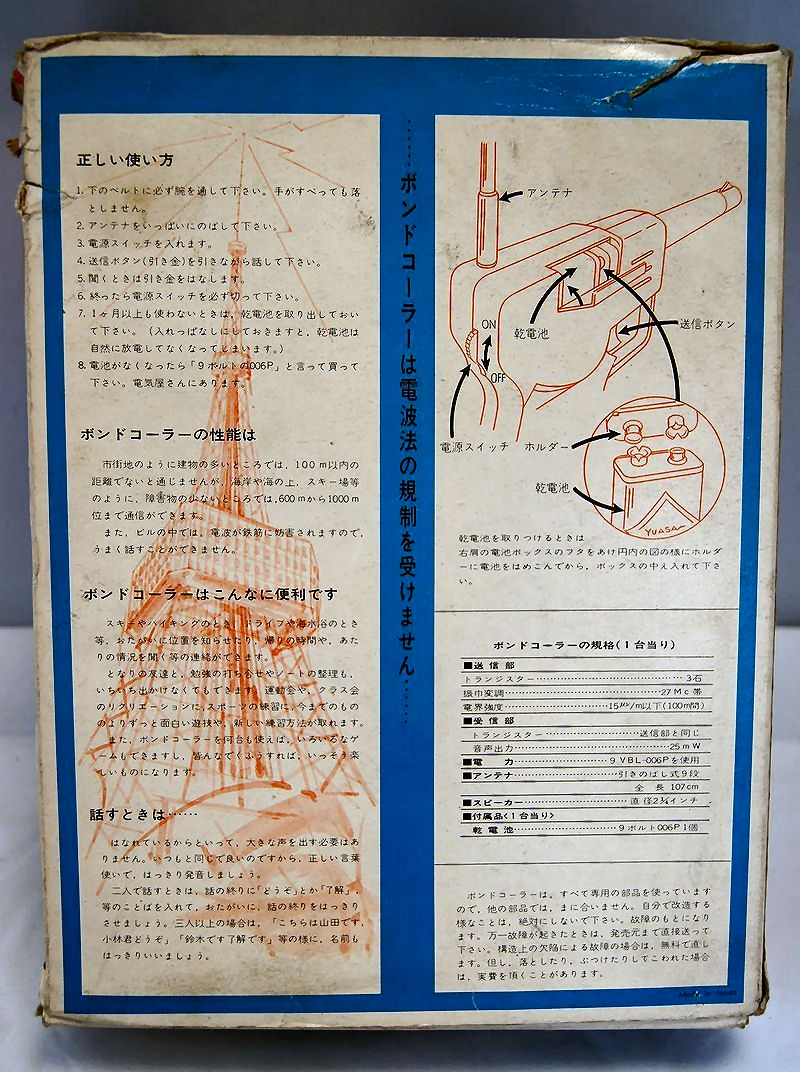 正しい使い方
1. 下のベルトに必ず腕を通して下さい。手がすべっても落
としません。
2. アンテナをいっぱいにのばして下さい。
3. 電源スイッチを入れます。
4. 送信ボタン(引き金)を引きながら話して下さい。
5. 聞くときは引き金をはなします。
6. 終ったら電源スイッチを必ず切って下さい。
7. 1ヶ月以上も使わないときは、乾電池を取り出しておい
て下さい。(入れっぱなしにしておきますと、乾電池は
自然に放電してなくなってしまいます。)
8. 電池がなくなったら「9ボルトの006P」と言って買って
下さい。電気屋さんにあります。
ボンドコーラーの性能は
市街地のように建物の多いところでは、100m以内の
距離でないと通じませんが、海岸や海の上、スキー場等
のように、障害物の少ないところでは、600mから1000m
位まで通信ができます。
また、ビルの中では、電波が鉄筋に妨害されますので、
うまく話すことができません。
ボンドコーラーはこんなに便利です
スキーやハイキングのとき、ドライブや海水浴のとき
等、おたがいに位置を知らせたり、帰りの時間や、あた
りの情況を聞く等の連絡ができます。
となりの友達と、勉強の打ち合せやノートの整理も、
いちいち出かけなくてもできます。運動会や、クラス会
のリクリエーションに、スポーツの練習に、今までのもの
のよりずっと面白い遊技や、新しい練習方法が取れます。
また、ボンドコーラーを何台も使えば、いろいろなゲ
ームもできますし、皆んなでくふうすれば、いっそう楽
しいものになります。
話すときは……
はなれているからといって、大きな声を出す必要はあ
りません。いつもと同じで良いのですから、正しい言葉
使いで、はっきり発音しましょう。
二人で話すときは、話の終りに「どうぞ」とか「了解」、
等のことばを入れて、おたがいに、話の終りをはっきり
させましょう。三人以上の場合は、「こちらは山田です、
小林君どうぞ」「鈴木です了解です」等の様に、名前も
はっきりいいましょう。
……ボンドコーラーは電波法の規制を受けません……
アンテナ
乾電池
送信ボタン
ON
OFF
電源スイッチ
ホルダー
乾電池
YUASA
乾電池を取りつけるときは
右肩の電池ボックスのフタをあけ円内の図の様にホルダ
ーに電池をはめこんでから、ボックスの中え入れて下さ
い。
ボンドコーラーの規格(1台当り)
■送信部
トランジスター……3石
振巾変調……27Mc帯
電界強度……15μV/m以下(100m間)
■受信部
トランジスター……送信部と同じ
音声出力……25mW
■電 力……9VBL-006Pを使用
■アンテナ……引きのばし式9段
全長 107cm
■スピーカー……直径2¼インチ
■付属品<1台当り>
乾電池……9ボルト006P1個
ボンドコーラーは、すべて専用の部品を使っています
ので、他の部品では、まに合いません。自分で改造する
様なことは、絶対にしないで下さい。故障のもとになり
ます。万一故障が起きたときは、発売元まで直接送って
下さい。構造上の欠陥による故障の場合は、無料で直し
ます。但し、落としたり、ぶつけたりしてこわれた場合
は、実費を頂くことがあります。
Made in Japan